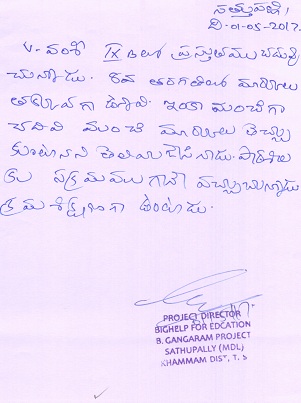 సత్తుపల్లి,
ది-01-05-2017.
V. వంశీ IX B లో ప్రస్తుతము చదువు
చున్నాడు. 8వ తరగతిలో మార్కులు
తక్కువగా ఉన్నవి. ఇంకా మంచిగా
చదివి మంచి మార్కులు తెచ్చు
కుంటానని తెలియజేసినాడు. పాఠశాల
కు సక్రమముగానే వచ్చుచున్నాడు
క్రమశిక్షణగా ఉంటాడు.
PROJECT DIRECTOR
BIGHELP FOR EDCATION
B. GANGARAM PROJECT
SATHUPALLY (MDL)
KHAMMAM DIST, T.S